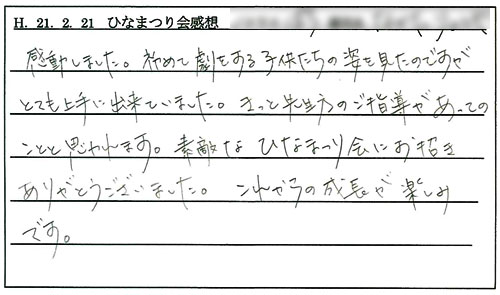 H. 21. 2. 21 ひなまつり会感想
感動しました。初めて劇をする子供たちの姿を見たのですが
とても上手に出来ていました。きっと先生方のご指導があっての
ことと思われます。素敵なひなまつり会にお招き
ありがとうございました。これからの成長が楽しみ
です。